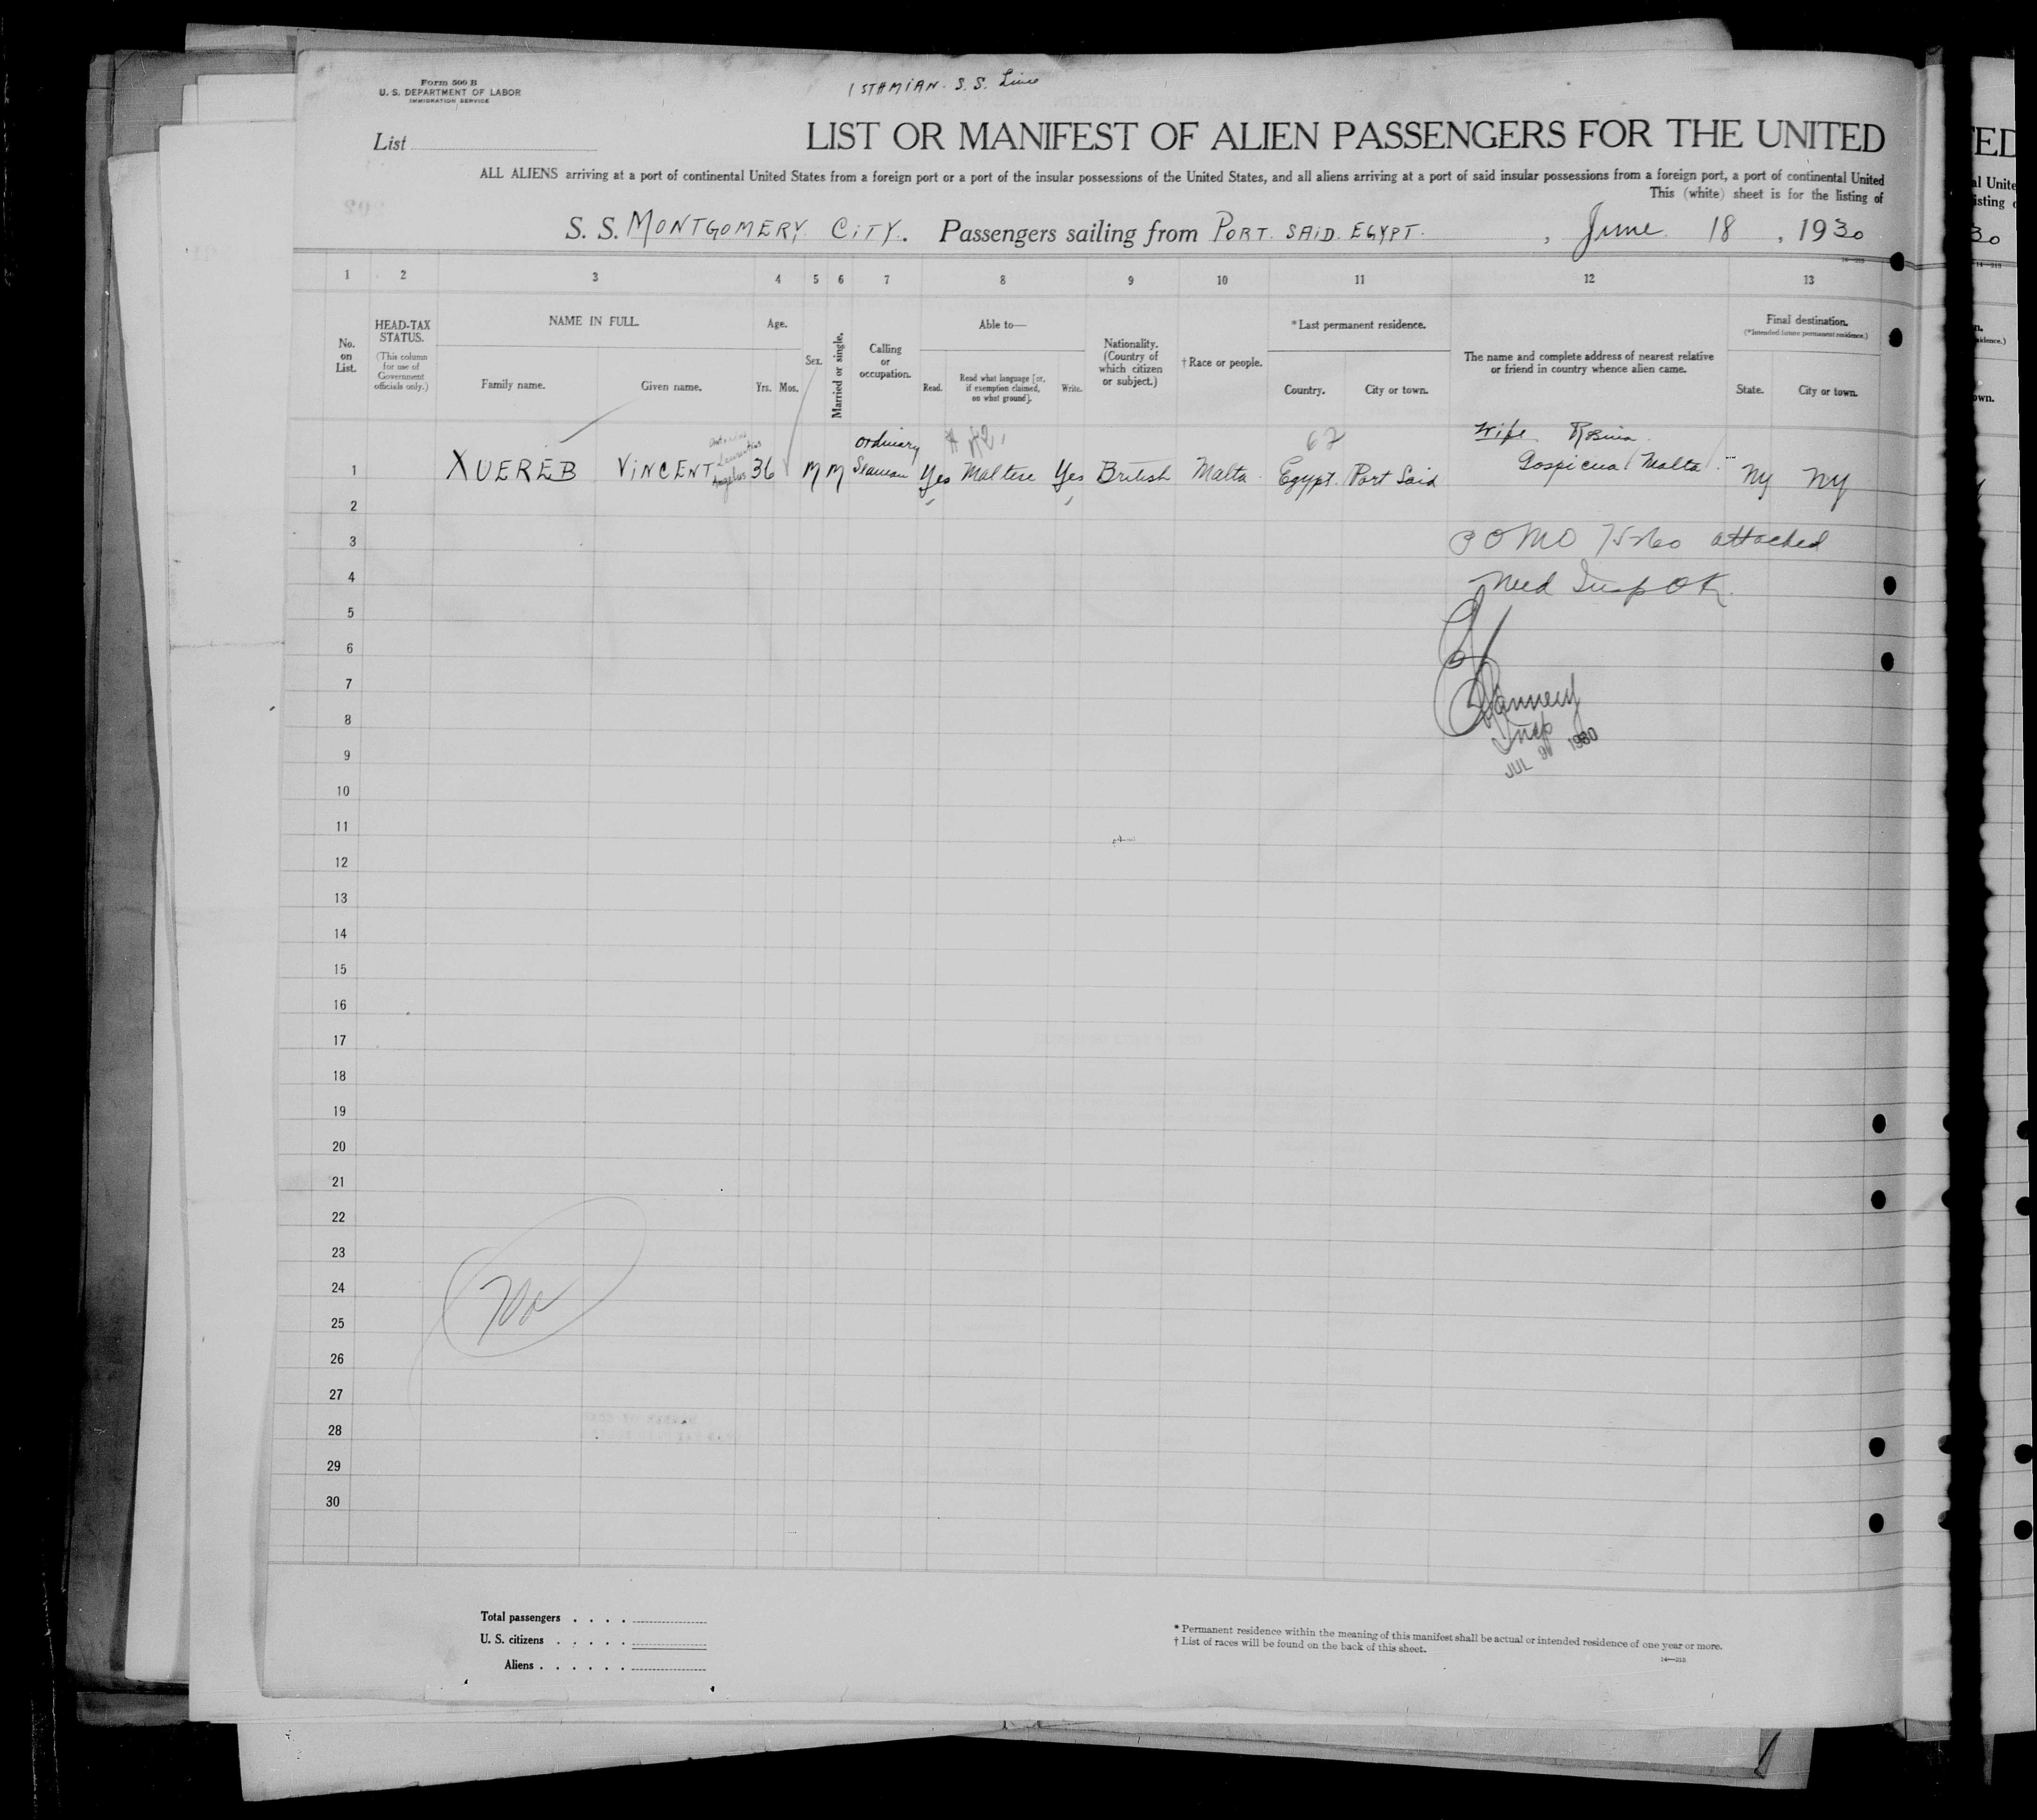 Form 500 B
U. S. DEPARTMENT OF LABOR
IMMIGRATION SERVICE
ISTHMIAN. S. S. Line
List
LIST OR MANIFEST OF ALIEN PASSENGERS FOR THE UNITED
ALL ALIENS arriving at a port of continental United States from a foreign port or a port of the insular possessions of the United States, and all aliens arriving at a port of said insular possessions from a foreign port, a port of continental United
This (white) sheet is for the listing of
S. S. MONTGOMERY CITY. Passengers sailing from PORT. SAID. EGYPT. , June 18 , 1930
14—213
1 2 3 4 5 6 7 8 9 10 11 12 13
No. on List.
HEAD-TAX STATUS.
(This column for use of Government officials only.)
NAME IN FULL.
Family name. Given name.
Age.
Yrs. Mos.
Sex.
Married or single.
Calling or occupation.
Able to—
Read. Read what language [or, if exemption claimed, on what ground]. Write.
Nationality. (Country of which citizen or subject.)
†Race or people.
*Last permanent residence.
Country. City or town.
The name and complete address of nearest relative or friend in country whence alien came.
Final destination.
(*Intended future permanent residence.)
State. City or town.
62
Wife Rosina
1 XUEREB VINCENT Angelus 36 M M ordinary Seaman Yes Maltese Yes British Malta Egypt. Port Said Gospicua (Malta). NY NY
2
3 attached
4 OK
5
6
7
8 Insp
9 JUL 1930
10
11
12
13
14
15
16
17
18
19
20
21
22
23
24
25
26
27
28
29
30
Total passengers . . . .
U. S. citizens . . . . .
Aliens . . . . . .
* Permanent residence within the meaning of this manifest shall be actual or intended residence of one year or more.
† List of races will be found on the back of this sheet.
14—213